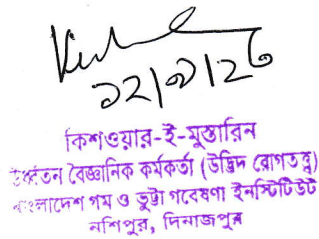 ১২/৩/২৩
কিশওয়ার-ই-মুস্তারিন
ঊর্ধ্বতন বৈজ্ঞানিক কর্মকর্তা (উদ্ভিদ রোগতত্ত্ব)
বাংলাদেশ গম ও ভুট্টা গবেষণা ইনস্টিটিউট
নশিপুর, দিনাজপুর